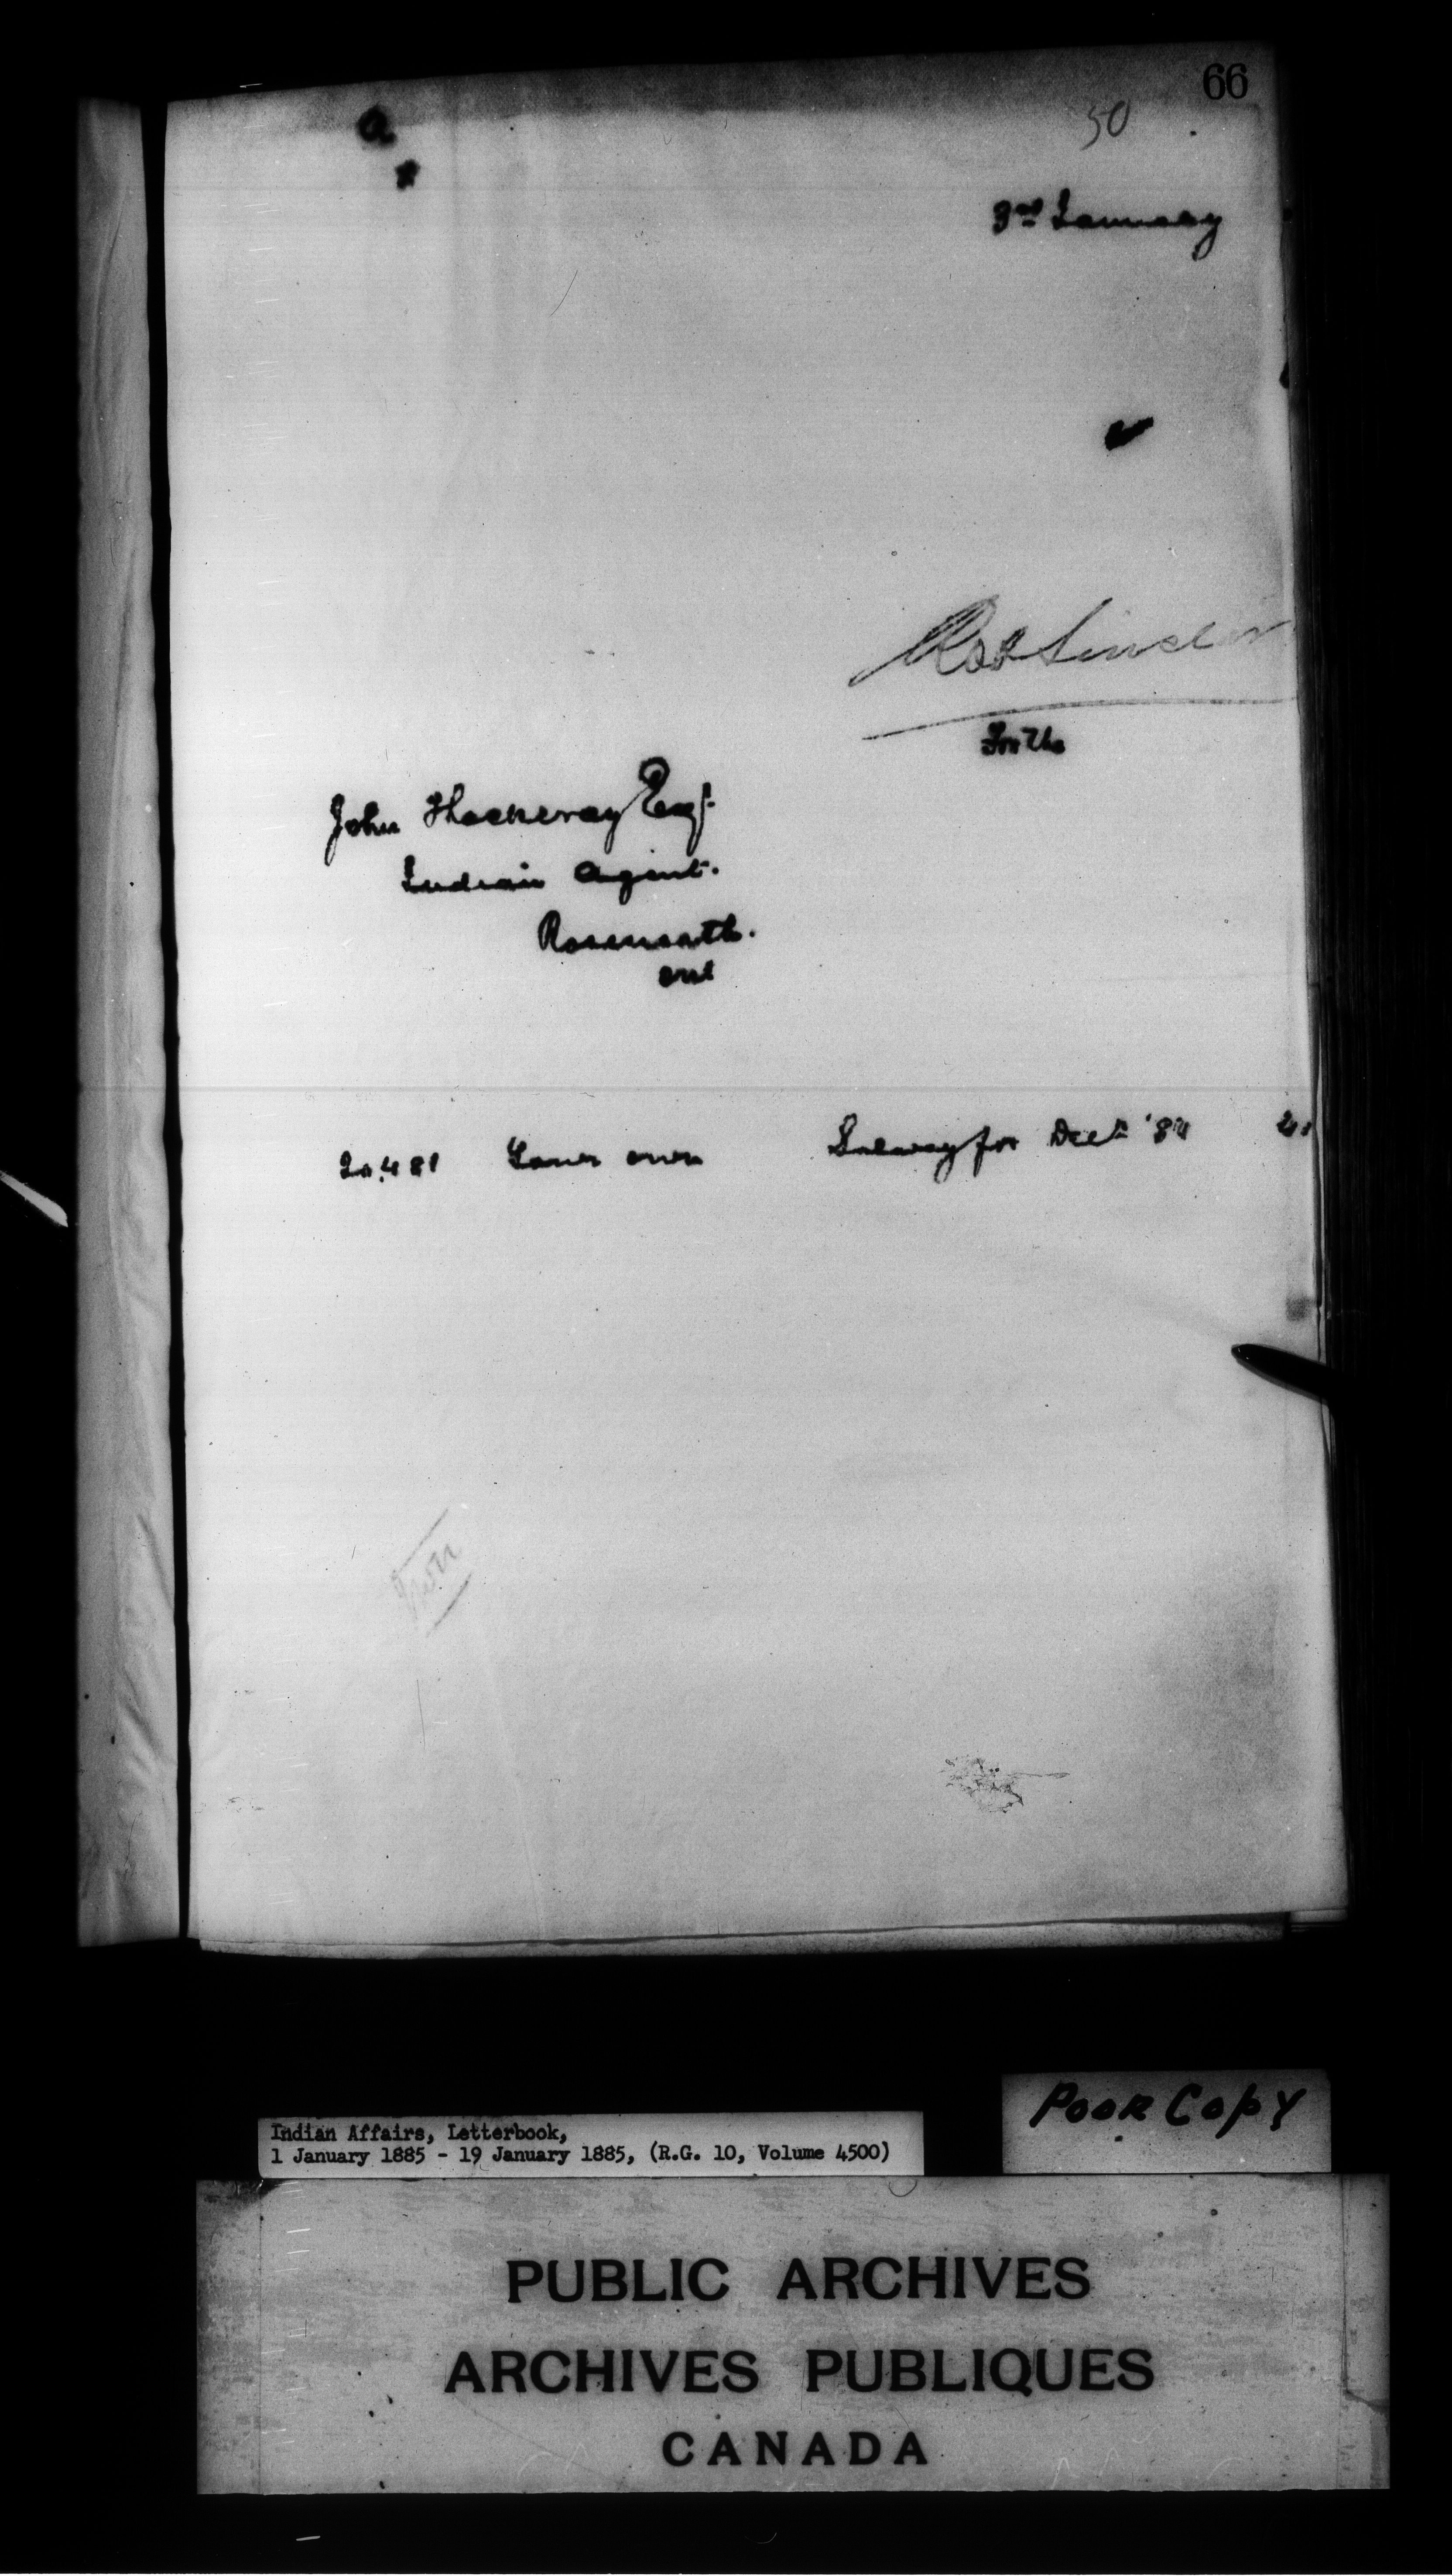 66
50
3rd January
Rob Sinclair
For the
John Thackeray Esq.
Indian Agent.
Roseneath.
Ont
20.481 Your own Salary for Decr '84
Indian Affairs, Letterbook,
1 January 1885 - 19 January 1885, (R.G. 10, Volume 4500)
Poor Copy
PUBLIC ARCHIVES
ARCHIVES PUBLIQUES
CANADA